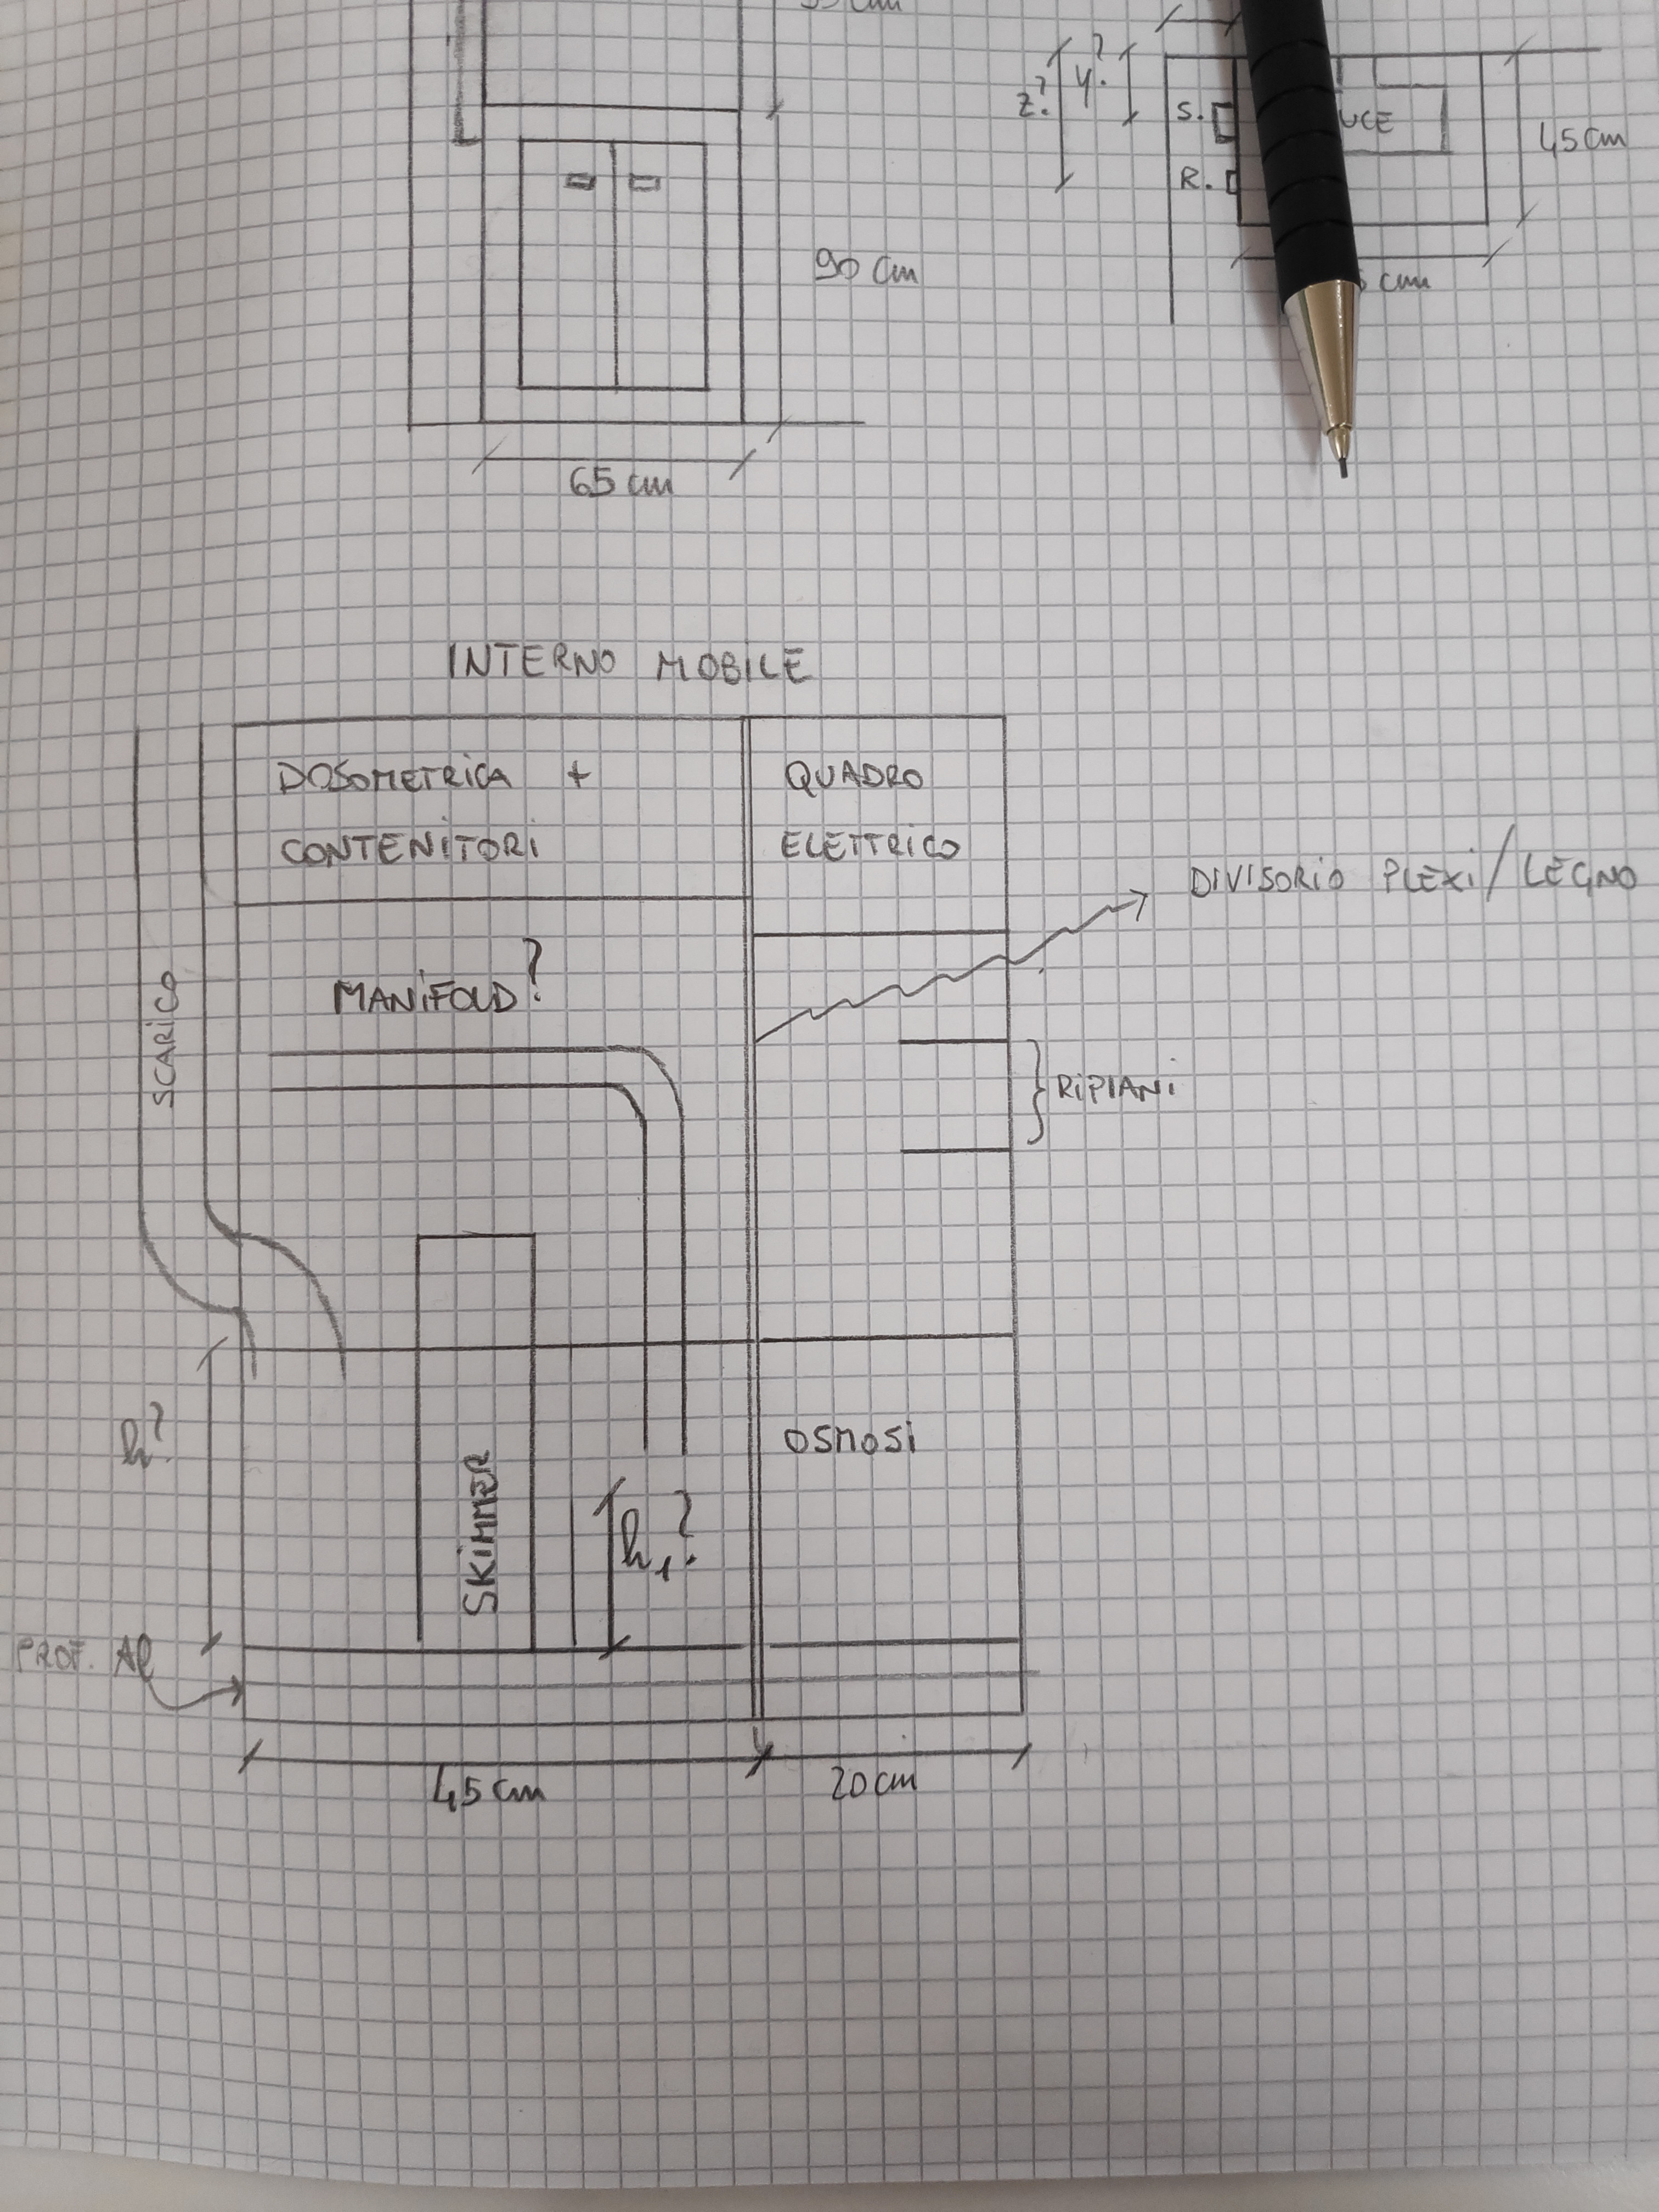 Z? Y?
S.
R.
45 cm
90 cm
65 cm
INTERNO MOBILE
DOSOMETRICA +
CONTENITORI
QUADRO
ELETTRICO
DIVISORIO PLEXI/LEGNO
MANIFOLD?
SCARICO
RIPIANI
h?
OSMOSI
SKIMMER
h₁?
PROF. Al
45 cm
20 cm